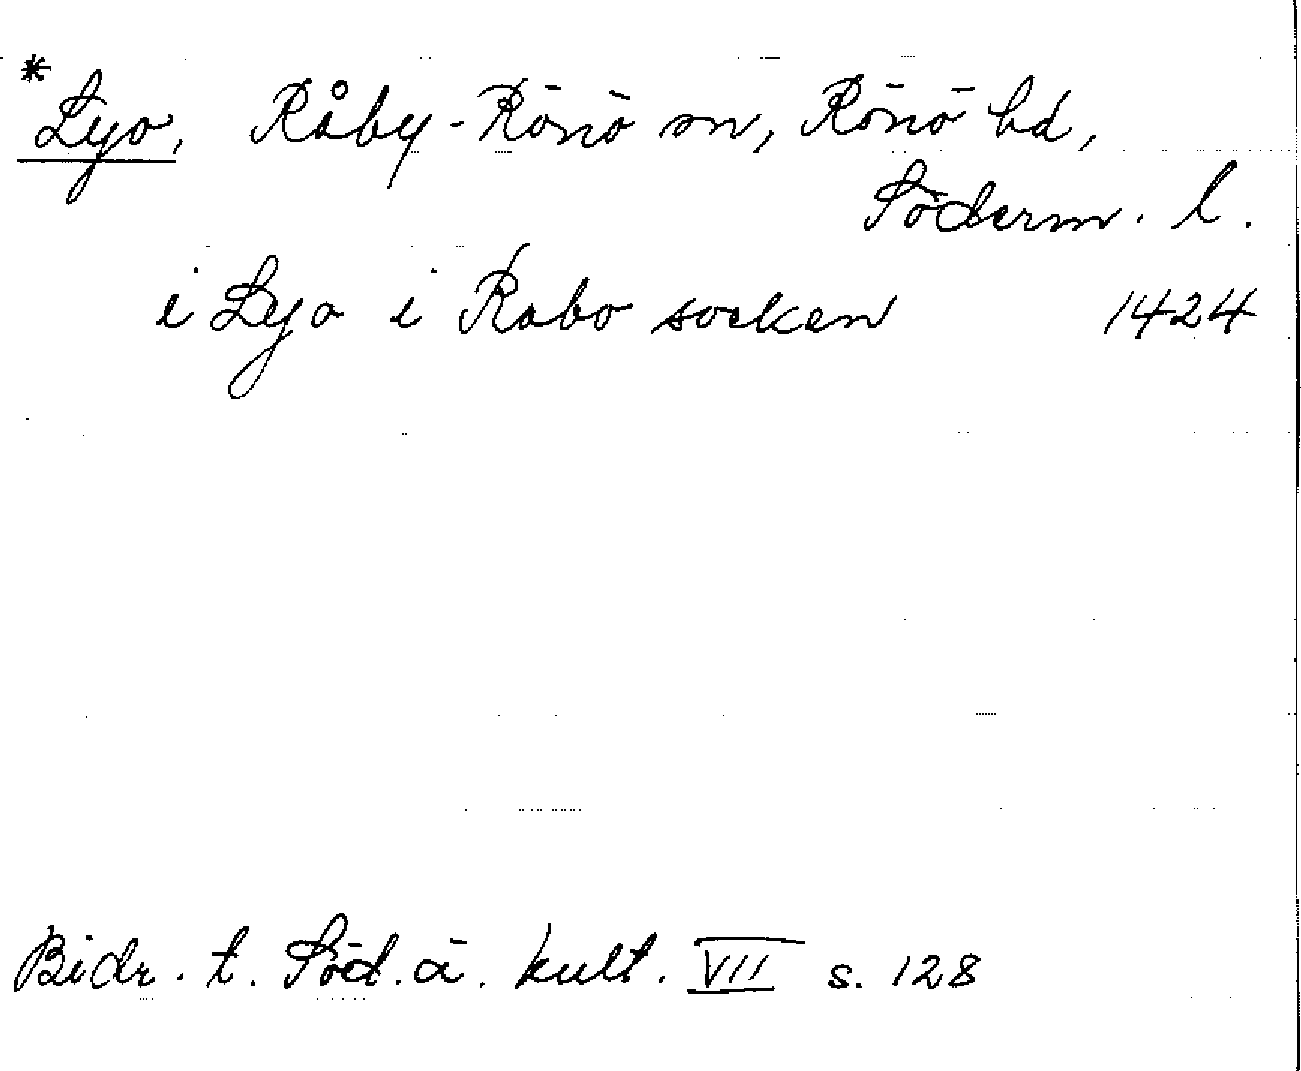 *Lyo, Råby-Rönö sn, Rönö hd,
Söderm. l.
i Lyo i Rabo socken 1424
Bidr. t. Söd. ä. kult. VII s. 128